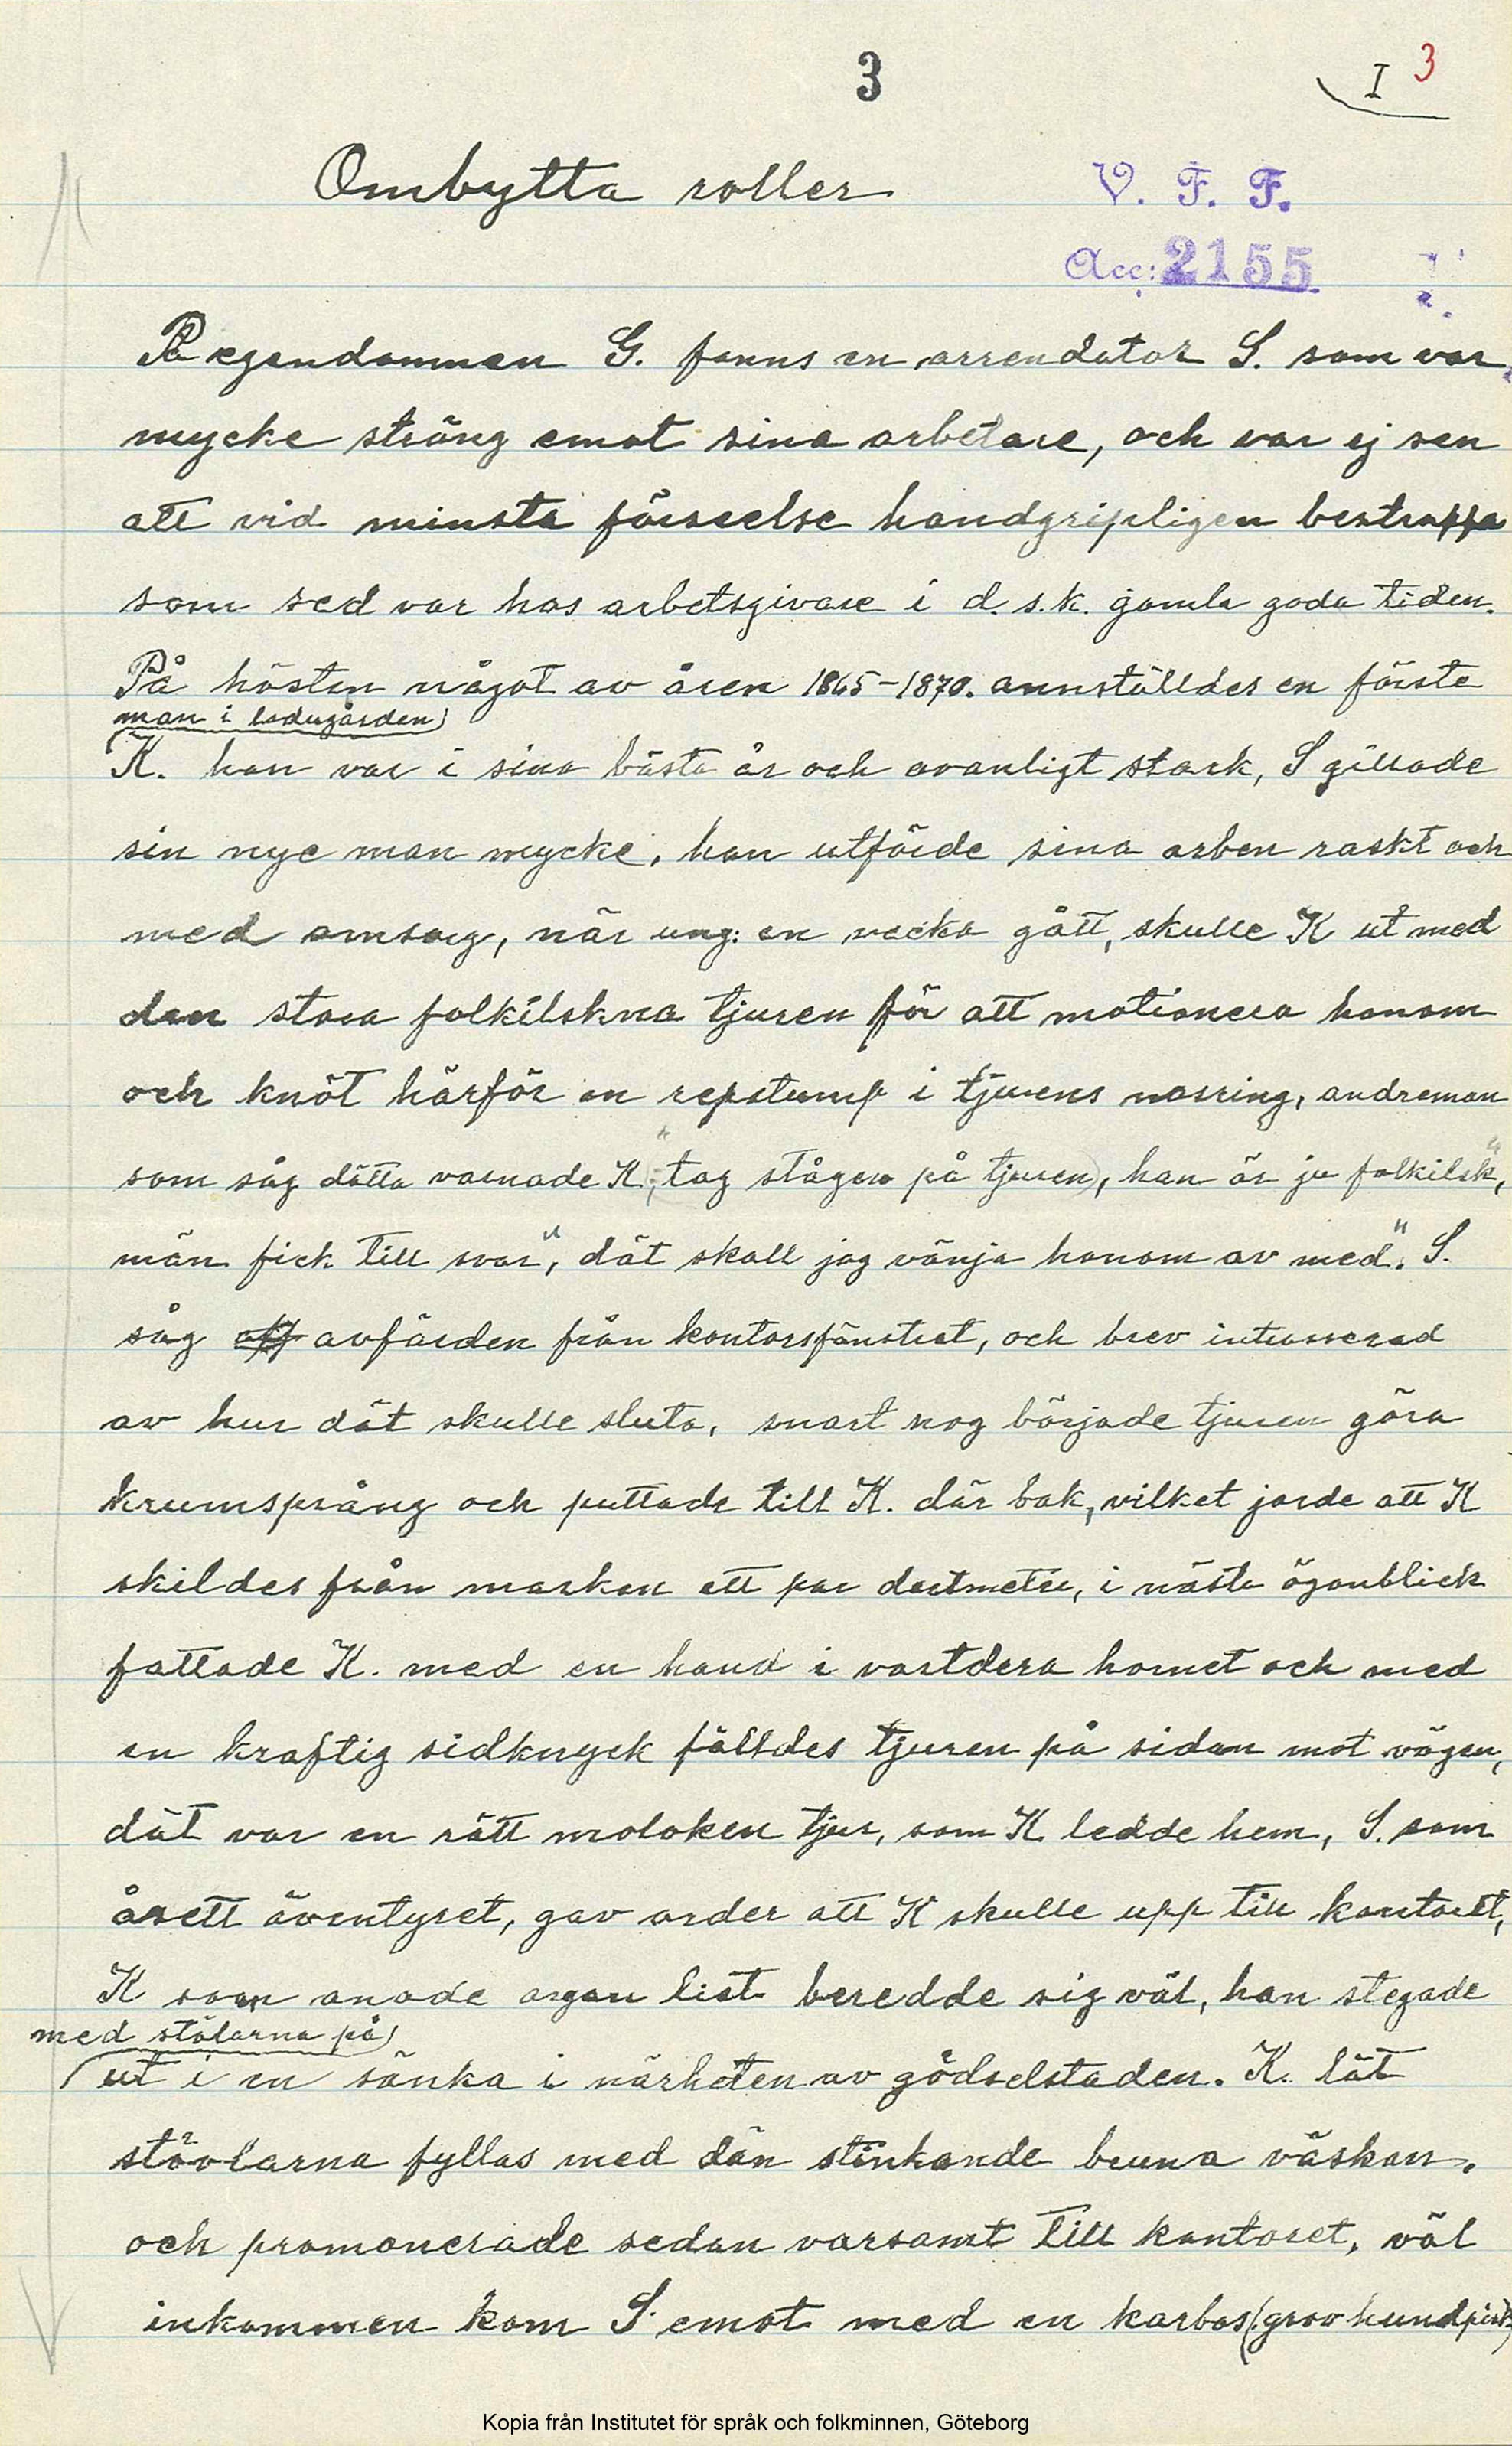 3
I 3
Ombytta roller
V. F. F.
Acc: 2155
På egendommen G. fanns en arrendator S. som var
mycke sträng emot sina arbetare, och var ej sen
att vid minsta förseelse handgripligen bestraffa
som sed var hos arbetsgivare i d. s.k. gamla goda tiden.
På hösten något av åren 1865-1870. annställdes en förste
man i ladugården
K. han var i sina bästa år och ovanligt stark, S gillade
sin nye man mycke, han utförde sina arben raskt och
med omsorg, när ung: en vecka gått, skulle K ut med
den stora folkilskna tjuren för att motionera honom
och knöt härför en repstump i tjurens nosring, andreman
som såg dätta varnade K, "tag stågen på tjuren, han är ju folkilsk",
män fick till svar, "dät skall jag vänja honom av med". S.
såg avfärden från kontorsfänstret, och brev intresserad
av hur dät skulle sluta, snart nog började tjuren göra
krumsprång och puttade till K. där bak, vilket jorde att K
skildes från marken ett par dertmeter, i nästa ögonblick
fattade K. med en hand i vartdera hornet och med
en kraftig sidknyck fälldes tjuren på sidan mot vägen,
dät var en rätt moloken tjur, som K. ledde hem, S. som
åsett äventyret, gav order att K skulle upp till kontoret,
K som anade argan list beredde sig väl, han stegade
med stölarna på
ut i en sänka i närheten av gödselstaden. K. lät
stövlarna fyllas med dän stinkande bruna väskan.
och promonerade sedan varsamt till kontoret, väl
inkommen kom S. emot med en karbas (grov hundpisk)
Kopia från Institutet för språk och folkminnen, Göteborg